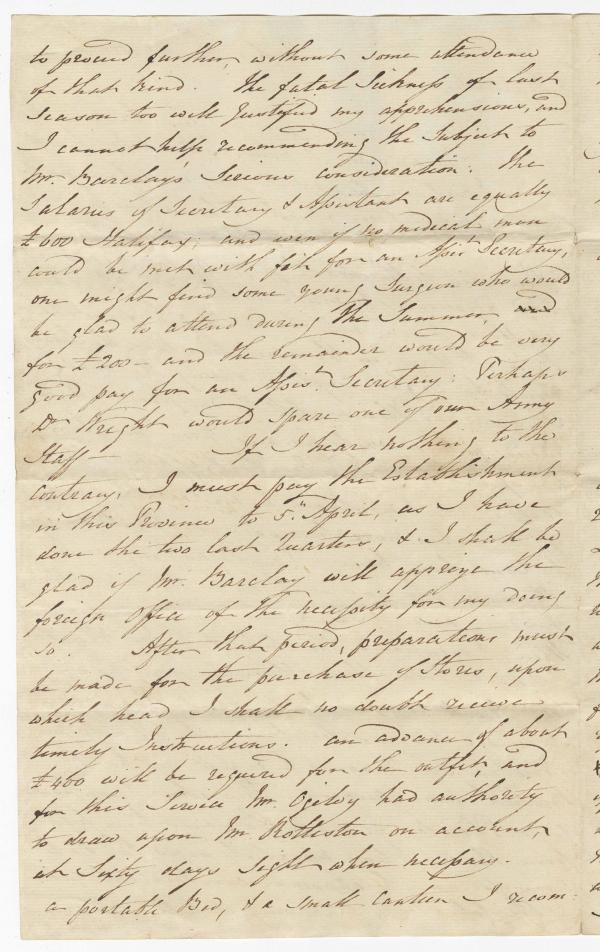 to proceed further, without some attendance
of that kind. The fatal Sickness of last
Season too well Justified my apprehensions, and
I cannot help recommending the Subject to
Mr. Barclay's Serious consideration. The
Salaries of Secretary & Assistant are equally
£600 Halifax; and even if no medical man
could be met with fit for an Assist. Secretary,
one might find some young Surgeon who would
be glad to attend during the Summer, and
for £200 - and the remainder would be very
good pay for an Assist. Secretary: Perhaps
Dr Wright would spare one of our Army
Staff - If I hear nothing to the
Contrary, I must pay the Establishment
in this Province to 5th April, as I have
done the two last Quarters, & I shall be
glad if Mr. Barclay will apprize the
foreign Office of the necessity for my doing
so. After that period, preparations must
be made for the purchase of Stores, upon
which head I shall no doubt receive
timely Instructions. an advance of about
£400 will be required for the outfit, and
for this Service Mr. Ogilvy had authority
to draw upon Mr Rolleston on account,
at Sixty days Sight when necessary.
a portable Bed, & a small Canteen I recom-